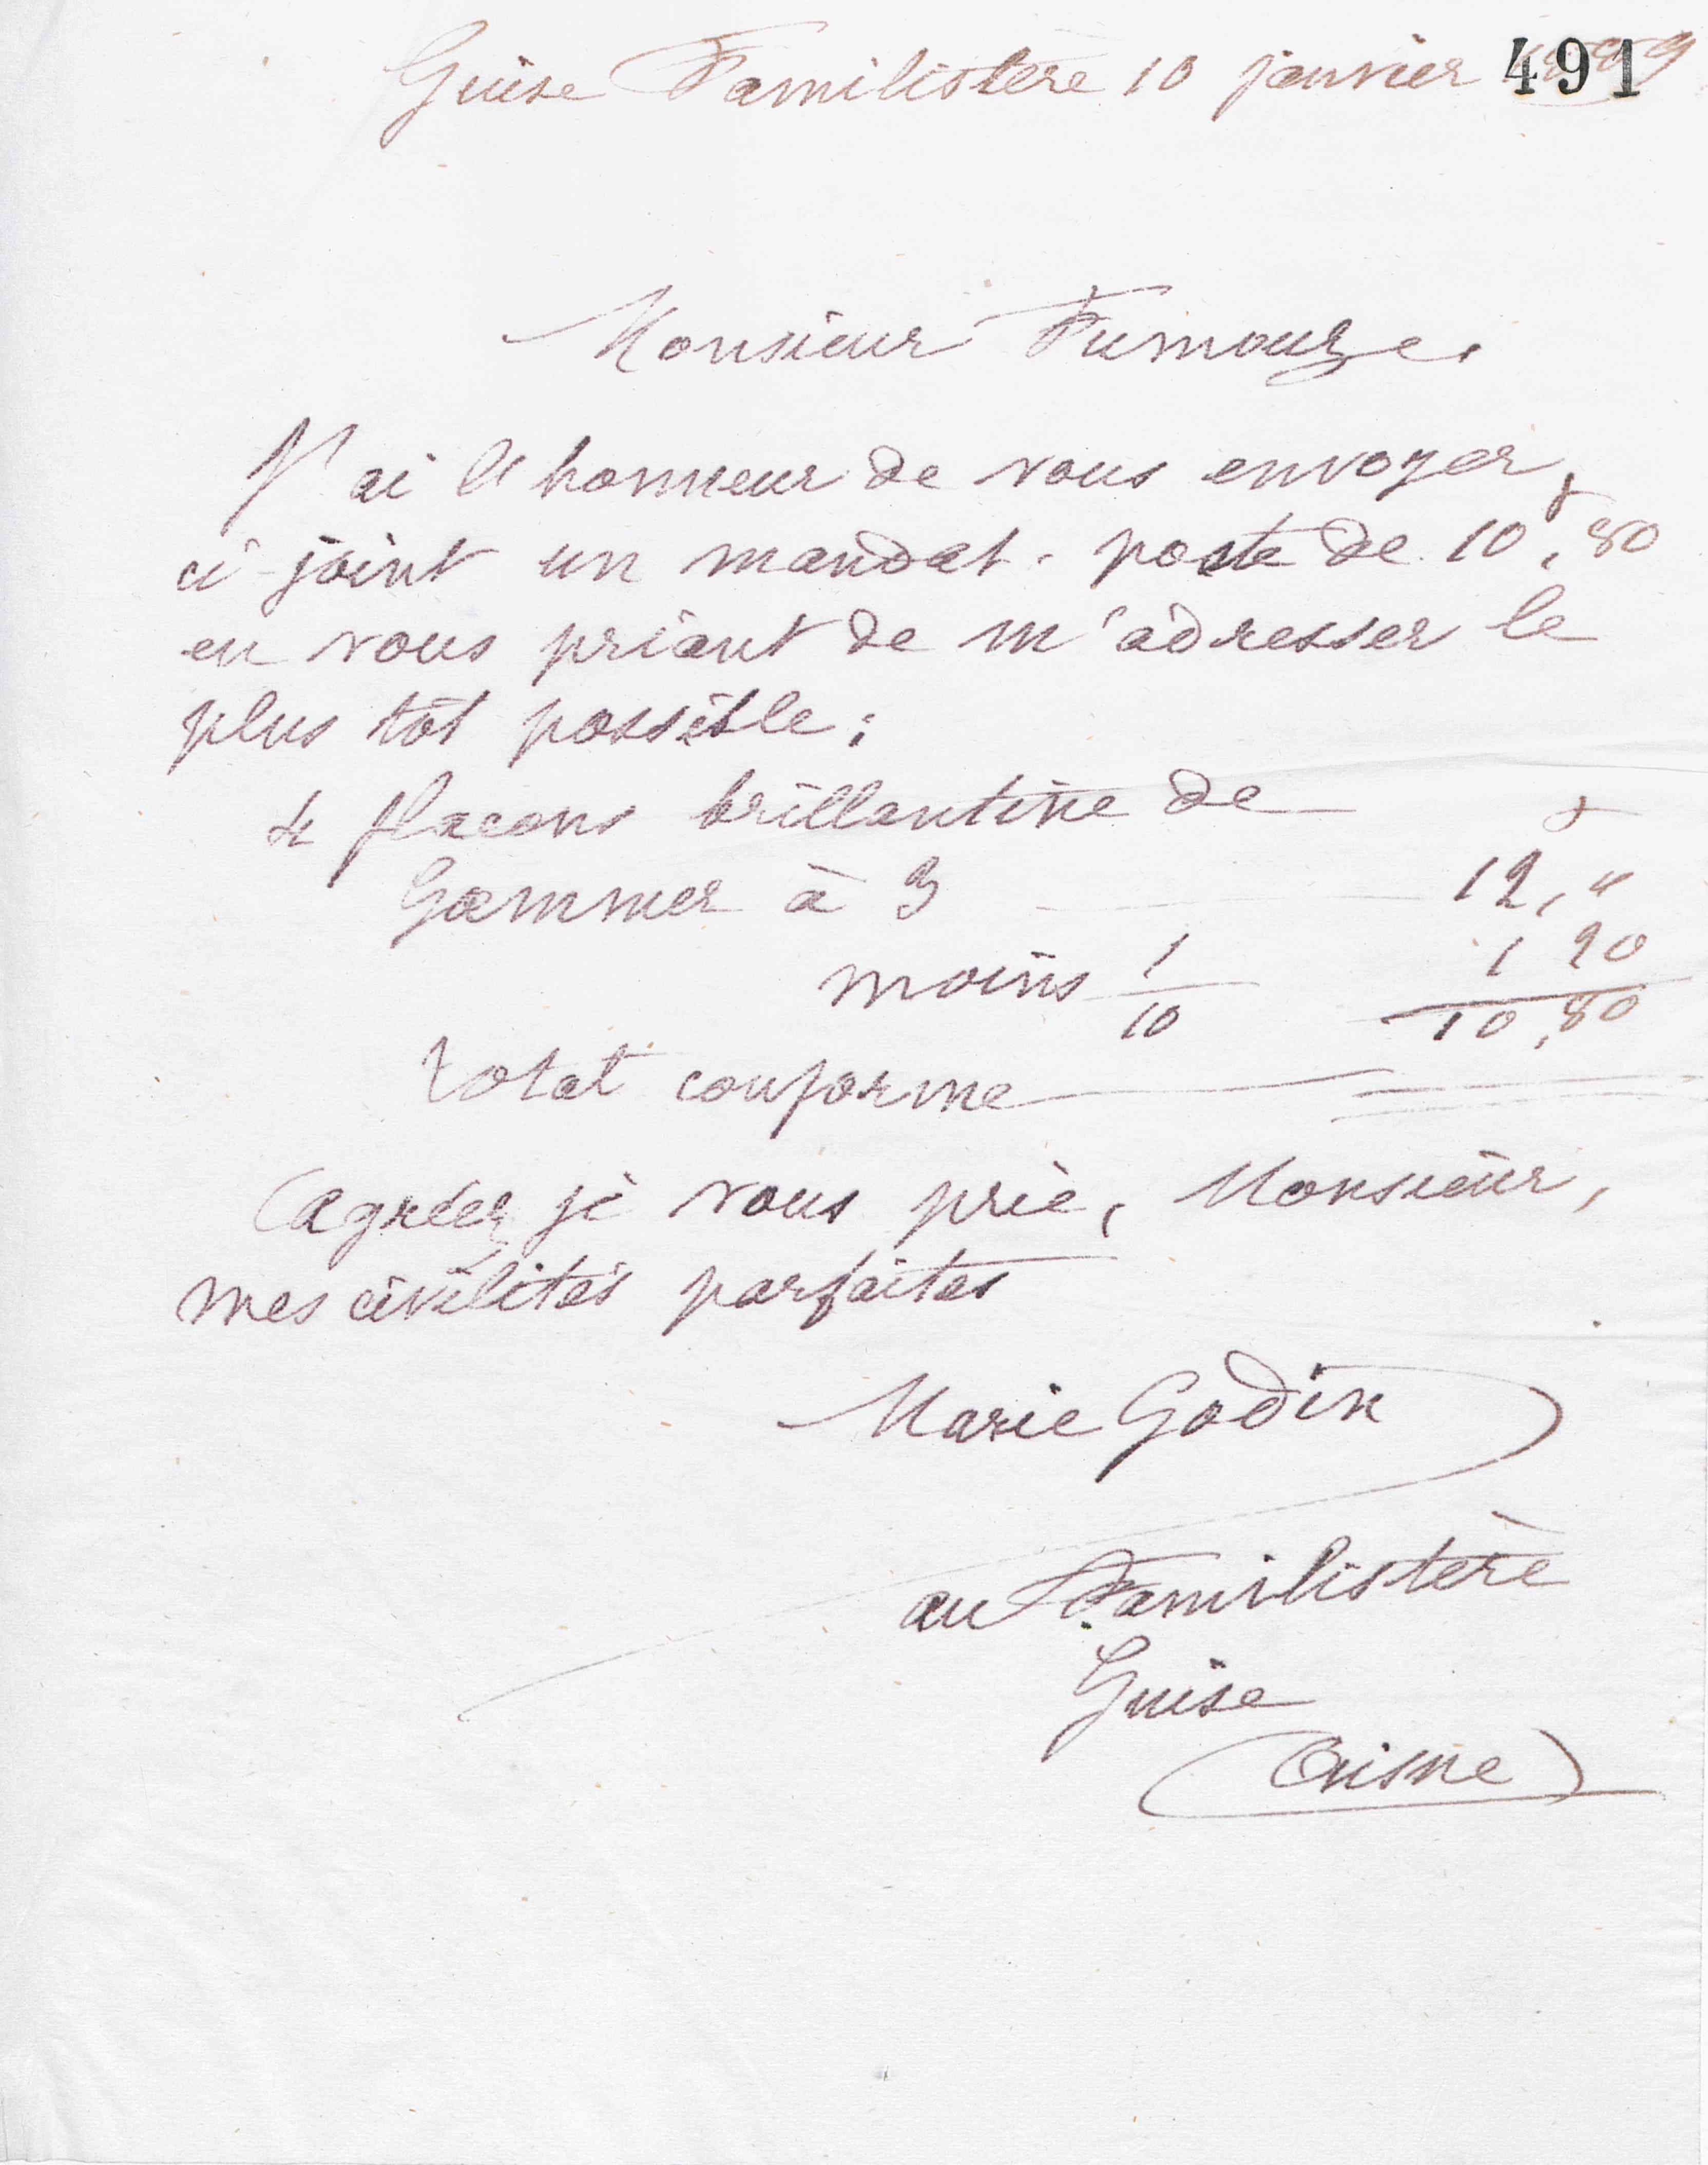 Guise Familistère 10 janvier
491
Monsieur Fumouze.
J'ai l'honneur de vous envoyer,
ci-joint un mandat-poste de 10f,80
en vous priant de m'adresser le
plus tôt possible:
4 flacons brillantine de f
Gommer à 3 12, "
moins 1/10 1 20
10,80
total conforme
Agréez je vous prie, Monsieur,
mes civilités parfaites
Marie Godin
au Familistère
Guise
(Aisne)